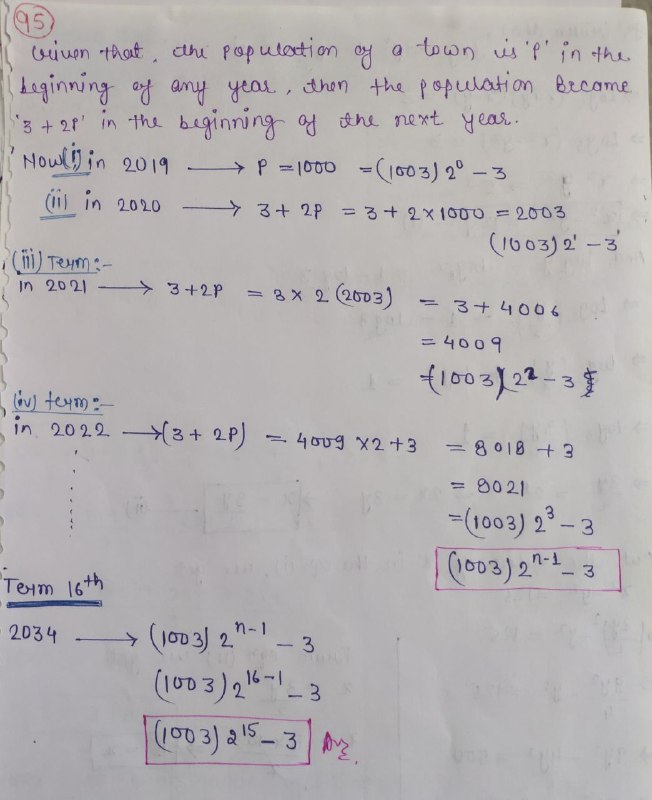 95
Given that, the population of a town is 'P' in the
beginning of any year, then the population become
'3 + 2P' in the beginning of the next year.
Now (i) in 2019 ⟶ P = 1000 = (1003) 2⁰ − 3
(ii) in 2020 ⟶ 3 + 2P = 3 + 2 × 1000 = 2003
(1003) 2¹ − 3
(iii) Term:-
in 2021 ⟶ 3+2P = 3 × 2 (2003) = 3 + 4006
= 4009
= (1003) 2² − 3
(iv) term:-
in 2022 ⟶ (3 + 2P) = 4009 × 2 + 3 = 8018 + 3
= 8021
= (1003) 2³ − 3
(1003) 2ⁿ⁻¹ − 3
Term 16th
2034 ⟶ (1003) 2ⁿ⁻¹ − 3
(1003) 2¹⁶⁻¹ − 3
(1003) 2¹⁵ − 3 Ans.